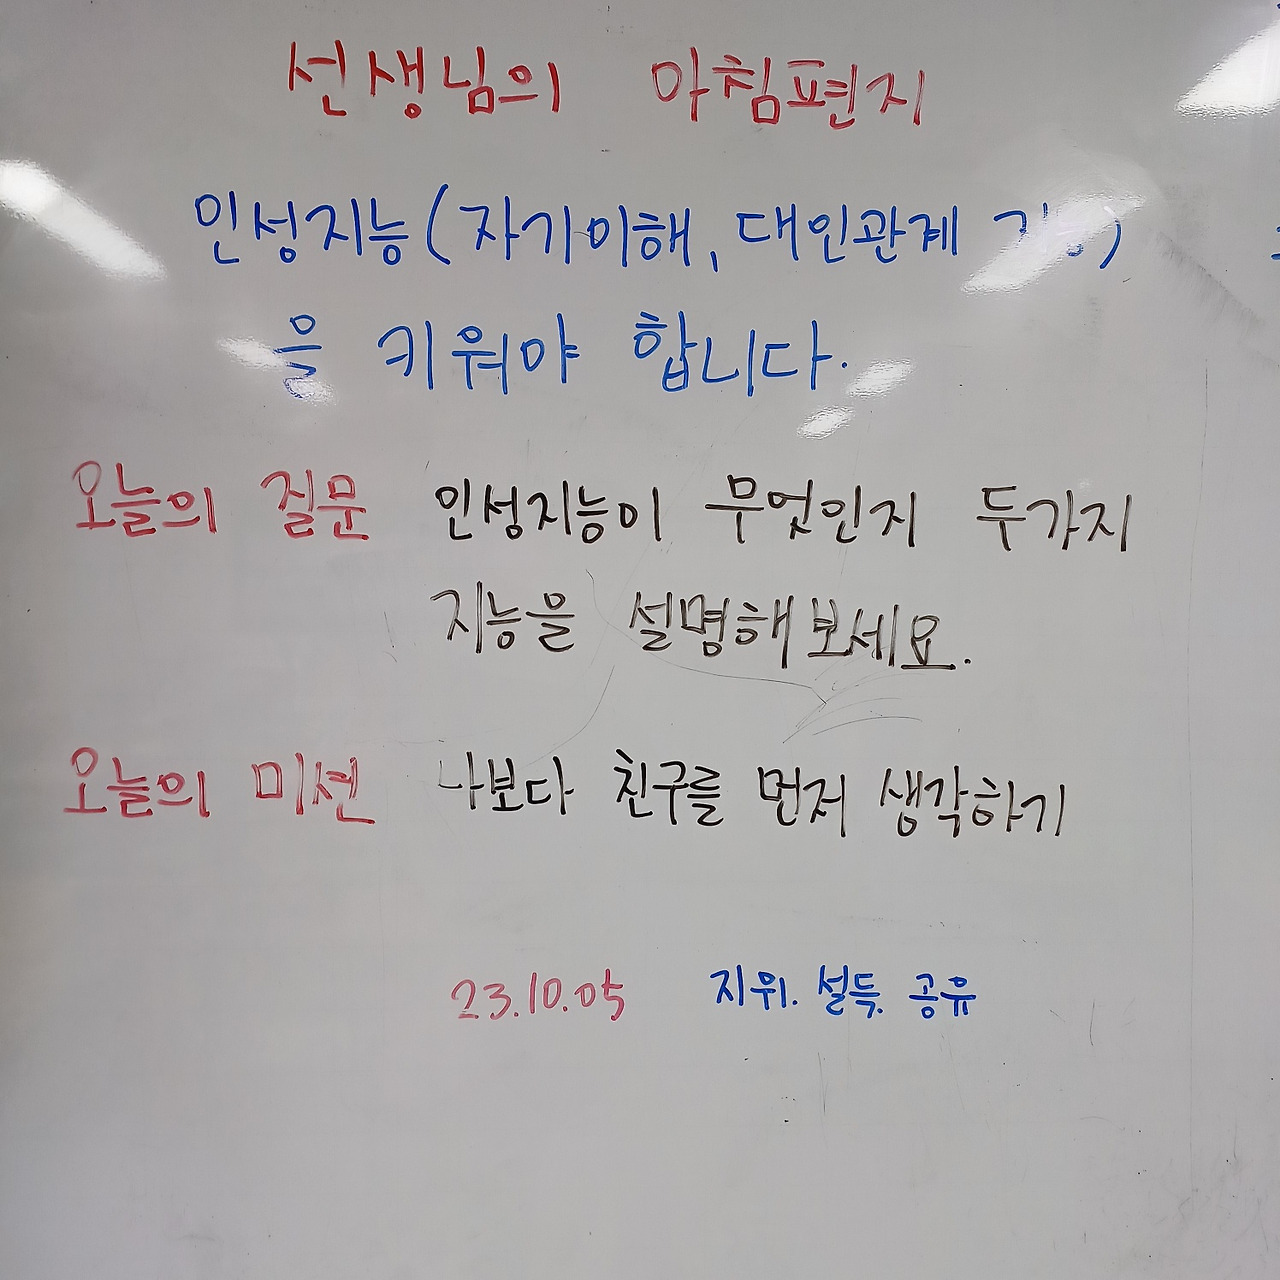 선생님의 아침편지
인성지능(자기이해, 대인관계 지능)
을 키워야 합니다.
오늘의 질문 인성지능이 무엇인지 두가지
지능을 설명해보세요.
오늘의 미션 나보다 친구를 먼저 생각하기
23.10.05 지위. 설득. 공유